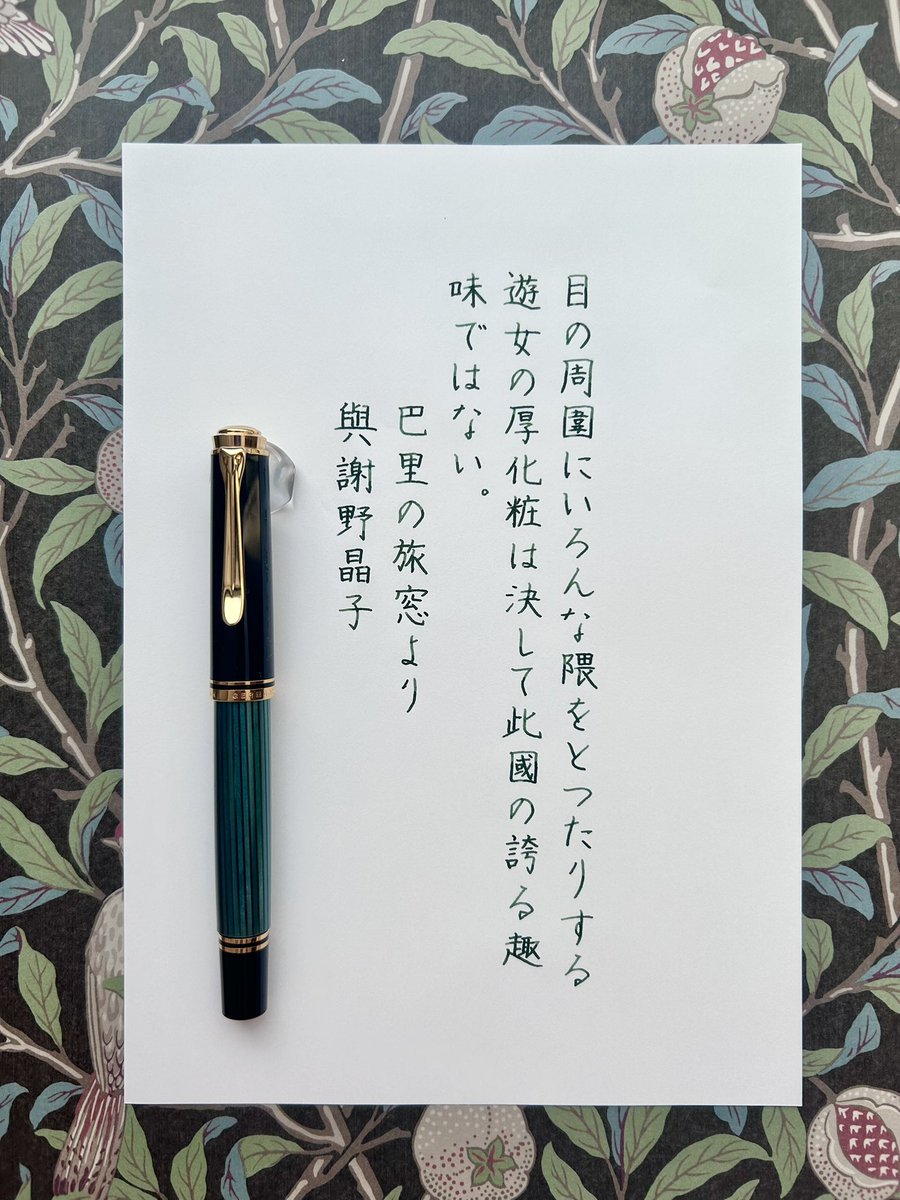 目の周圍にいろんな隈をとつたりする
遊女の厚化粧は決して此國の誇る趣
味ではない。
巴里の旅窓より
與謝野晶子